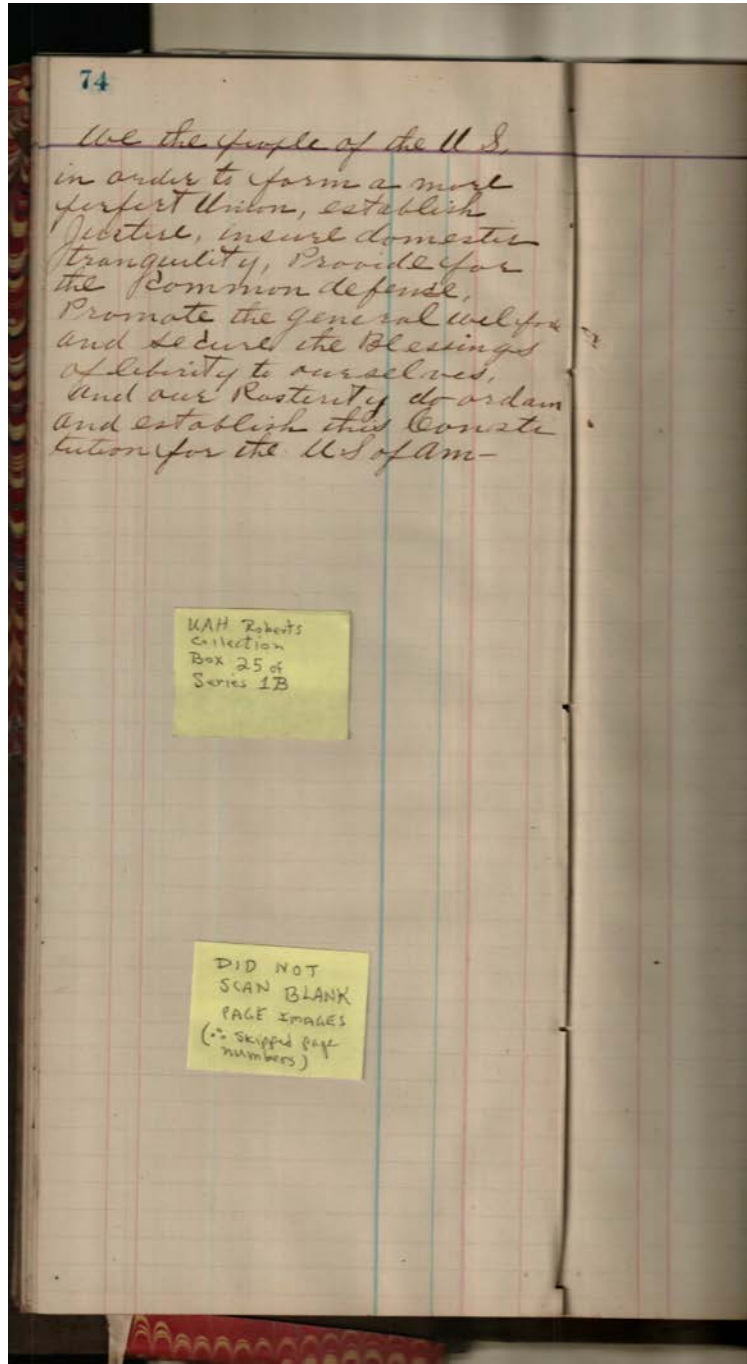 74
We the people of the U S.
in order to form a more
perfect Union, establish
Justice, insure domestic
tranquility, Provide for
the Common defense,
Promote the general welfare
and secure the Blessings
of liberity to ourselves,
and our Posterity do ordain
and establish this Consti
tution for the U S of Am-
UAH Roberts
Collection
Box 25 of
Series 1B
DID NOT
SCAN BLANK
PAGE IMAGES
(∴ skipped page
numbers)